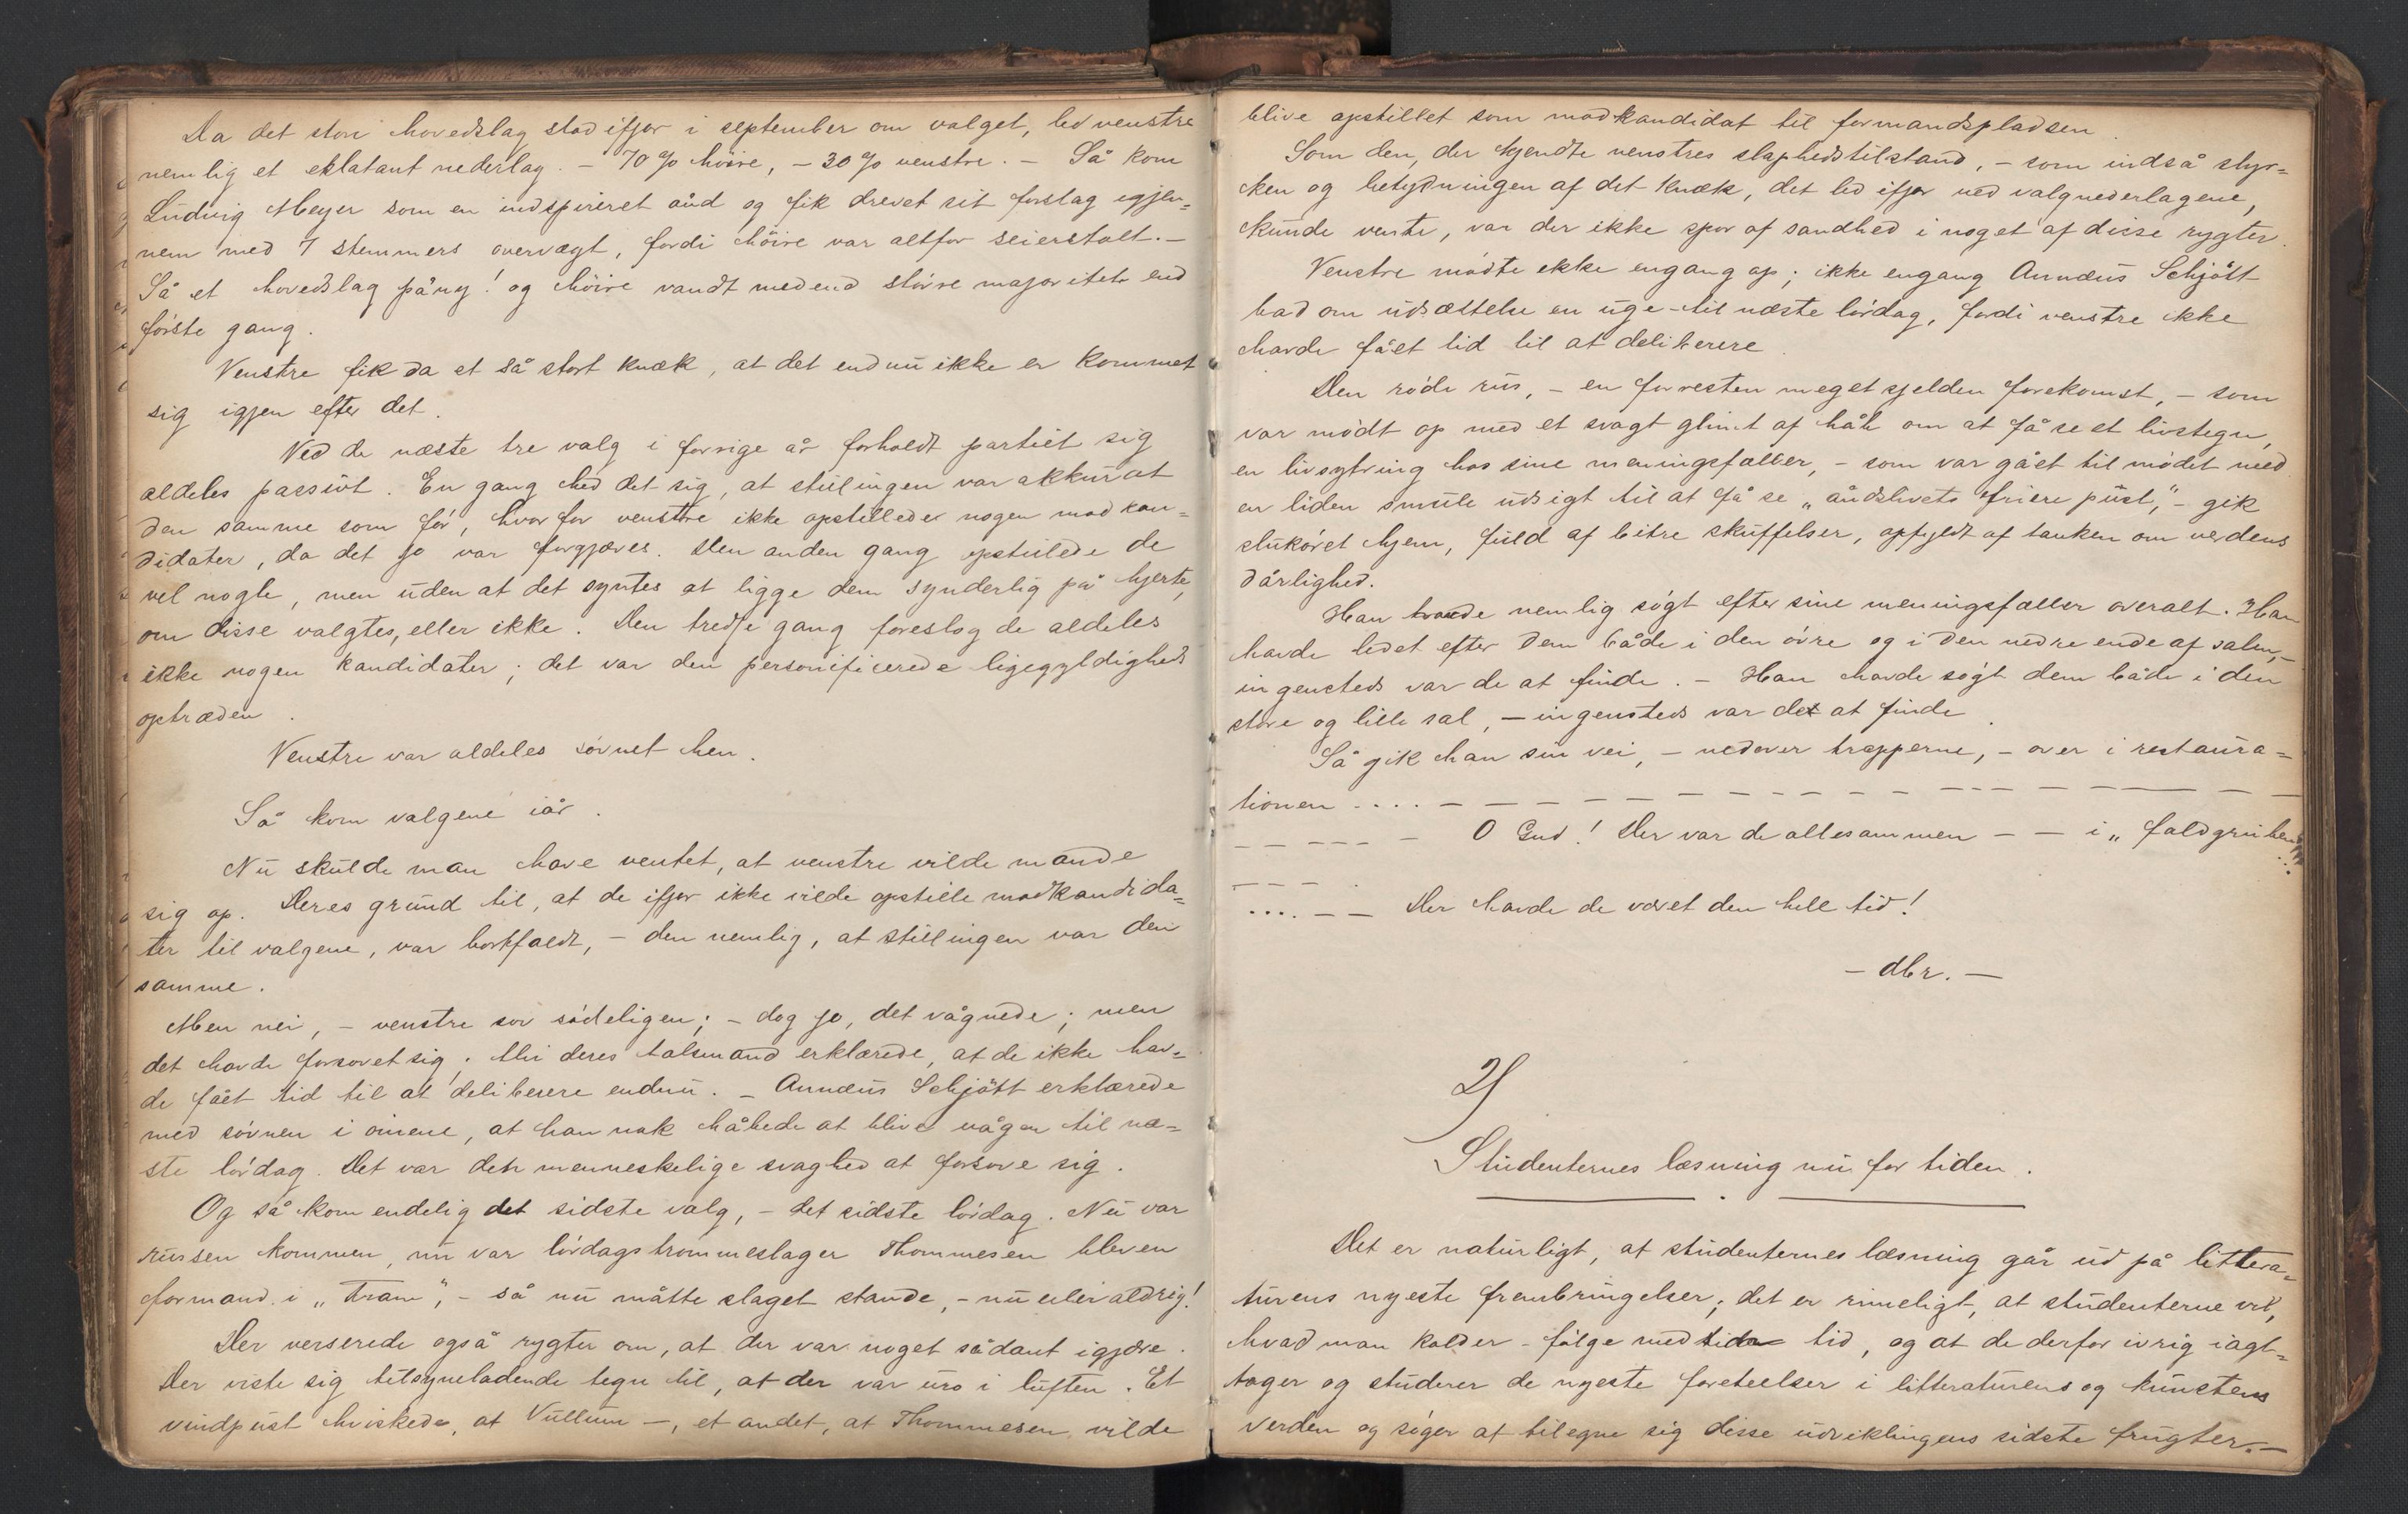 Da det store hovedslag stod ifjor i september om valget, led venstre
nemlig et eklatant nederlag. – 70 % høire, – 30 % venstre. – Så kom
Ludvig Meyer som en indspireret ånd og fik drevet sit forslag igjen-
nem med 7 stemmers overvægt, fordi høire var altfor seierstolt. –
Så et hovedslag påny! og høire vandt med end større majoritet end
første gang.
Venstre fik da et så stort knæk, at det endnu ikke er kommet
sig igjen efter det.
Ved de næste tre valg i forrige år forholdt partiet sig
aldeles passivt. En gang hed det sig, at stillingen var akkurat
den samme som før, hvorfor venstre ikke opstillede nogen modkan-
didater, da det jo var forgjæves. Den anden gang opstillede de
vel nogle, men uden at det syntes at ligge dem synderlig på hjerte,
om disse valgtes, eller ikke. Den tredje gang foreslog de aldeles
ikke nogen kandidater; det var den personificerede ligegyldigheds
optræden.
Venstre var aldeles søvnet hen.
Så kom valgene iår.
Nu skulde man have ventet, at venstre vilde mande
sig op. Deres grund til, at de ifjor ikke vilde opstille modkandida-
ter til valgene, var bortfaldt, – den nemlig, at stillingen var den
samme.
Men nei, – venstre sov sødeligen; – dog jo, det vågnede; men
det havde forsovet sig; thi deres talsmand erklærede, at de ikke hav-
de fået tid til at deliberere endnu. – Annæus Schjøtt erklærede
med søvnen i øinene, at han nok håbede at blive vågen til næ-
ste lørdag. Det var den menneskelige svaghed at forsove sig.
Og så kom endelig det sidste valg, – det sidste lørdag. Nu var
russen kommen, nu var lørdagstrommeslager Thommesen bleven
formand i „Fram“, – så nu måtte slaget stande, – nu eller aldrig!
Der verserede også rygter om, at der var noget sådant igjære.
Der viste sig tilsyneladende tegn til, at der var uro i luften. Et
vindpust hviskede, at Vullum –, et andet, at Thommesen vilde
blive opstillet som modkandidat til formandspladsen.
Som den, der kjendte venstres slaphedstilstand, – som indså styr-
ken og betydningen af det knæk, det led ifjor ved valgnederlagene,
kunde vente, var der ikke spor af sandhed i noget af disse rygter.
Venstre mødte ikke engang op; ikke engang Annæus Schjøtt
bad om udsættelse en uge – til næste lørdag, fordi venstre ikke
havde fået tid til at deliberere.
Den røde rus, – en forresten meget sjelden forekomst, – som
var mødt op med et svagt glimt af håb om at få se et livstegn,
en livsytring hos sine meningsfæller, – som var gået til mødet med
en liden smule udsigt til at få se „åndslivets friere pust,“ – gik
slukøret hjem, fuld af bitre skuffelser, opfyldt af tanken om verdens
dårlighed.
Han havde nemlig søgt efter sine meningsfæller overalt. Han
havde ledet efter dem både i den øvre og i den nedre ende af salen, –
ingensteds var de at finde. – Han havde søgt dem både i den
store og lille sal, – ingensteds var det at finde.
Så gik han sin vei, – nedover trapperne, – over i restaura-
tionen .... – – – – – – – – – – – – – – –
– – – – – – O Gud! Der var de allesammen – – i „faldgruben“
– – – .
.... – – Der havde de været den hele tid!
– dbr. –
2)
Studenternes læsning nu for tiden.
Det er naturligt, at studenternes læsning går ud på littera-
turens nyeste frembringelser; det er rimeligt, at studenterne vil,
hvad man kalder – følge med sider tid, og at de derfor ivrig iagt-
tager og studerer de nyeste foreteelser i litteraturens og kunstens
verden og søger at tilegne sig disse udviklingens sidste frugter. –